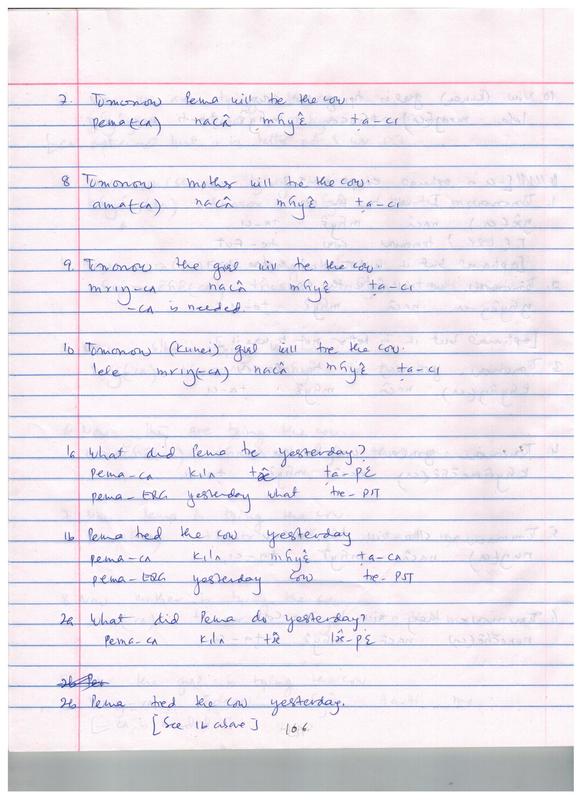 7. Tomorrow Pema will tie the cow
pema(-cʌ) nacʌ̂ mɦyɛ̂ ṭa-cɪ
8 Tomorrow mother will tie the cow.
ama(-cʌ) nacʌ̂ mɦyɛ̂ ṭa-cɪ
9. Tomorrow the girl will tie the cow
mrɪŋ-cʌ nacʌ̂ mɦyɛ̂ ṭa-cɪ
-cʌ is needed.
10 Tomorrow (Kunei) girl will tie the cow.
lele mrɪŋ(-cʌ) nacʌ̂ mɦyɛ̂ ṭa-cɪ
1a What did Pema tie yesterday?
pema-cʌ kilʌ tæ̂ ṭa-pɛ
pema-ERG yesterday what tie-PST
1b Pema tied the cow yesterday
pema-cʌ kilʌ mɦyɛ̂ ṭa-cʌ
pema-ERG yesterday cow tie-PST
2a What did Pema do yesterday?
Pema-cʌ kilʌ tæ̂ læ̂-pɛ
2b Pema tied the cow yesterday.
[See 1b above]
106